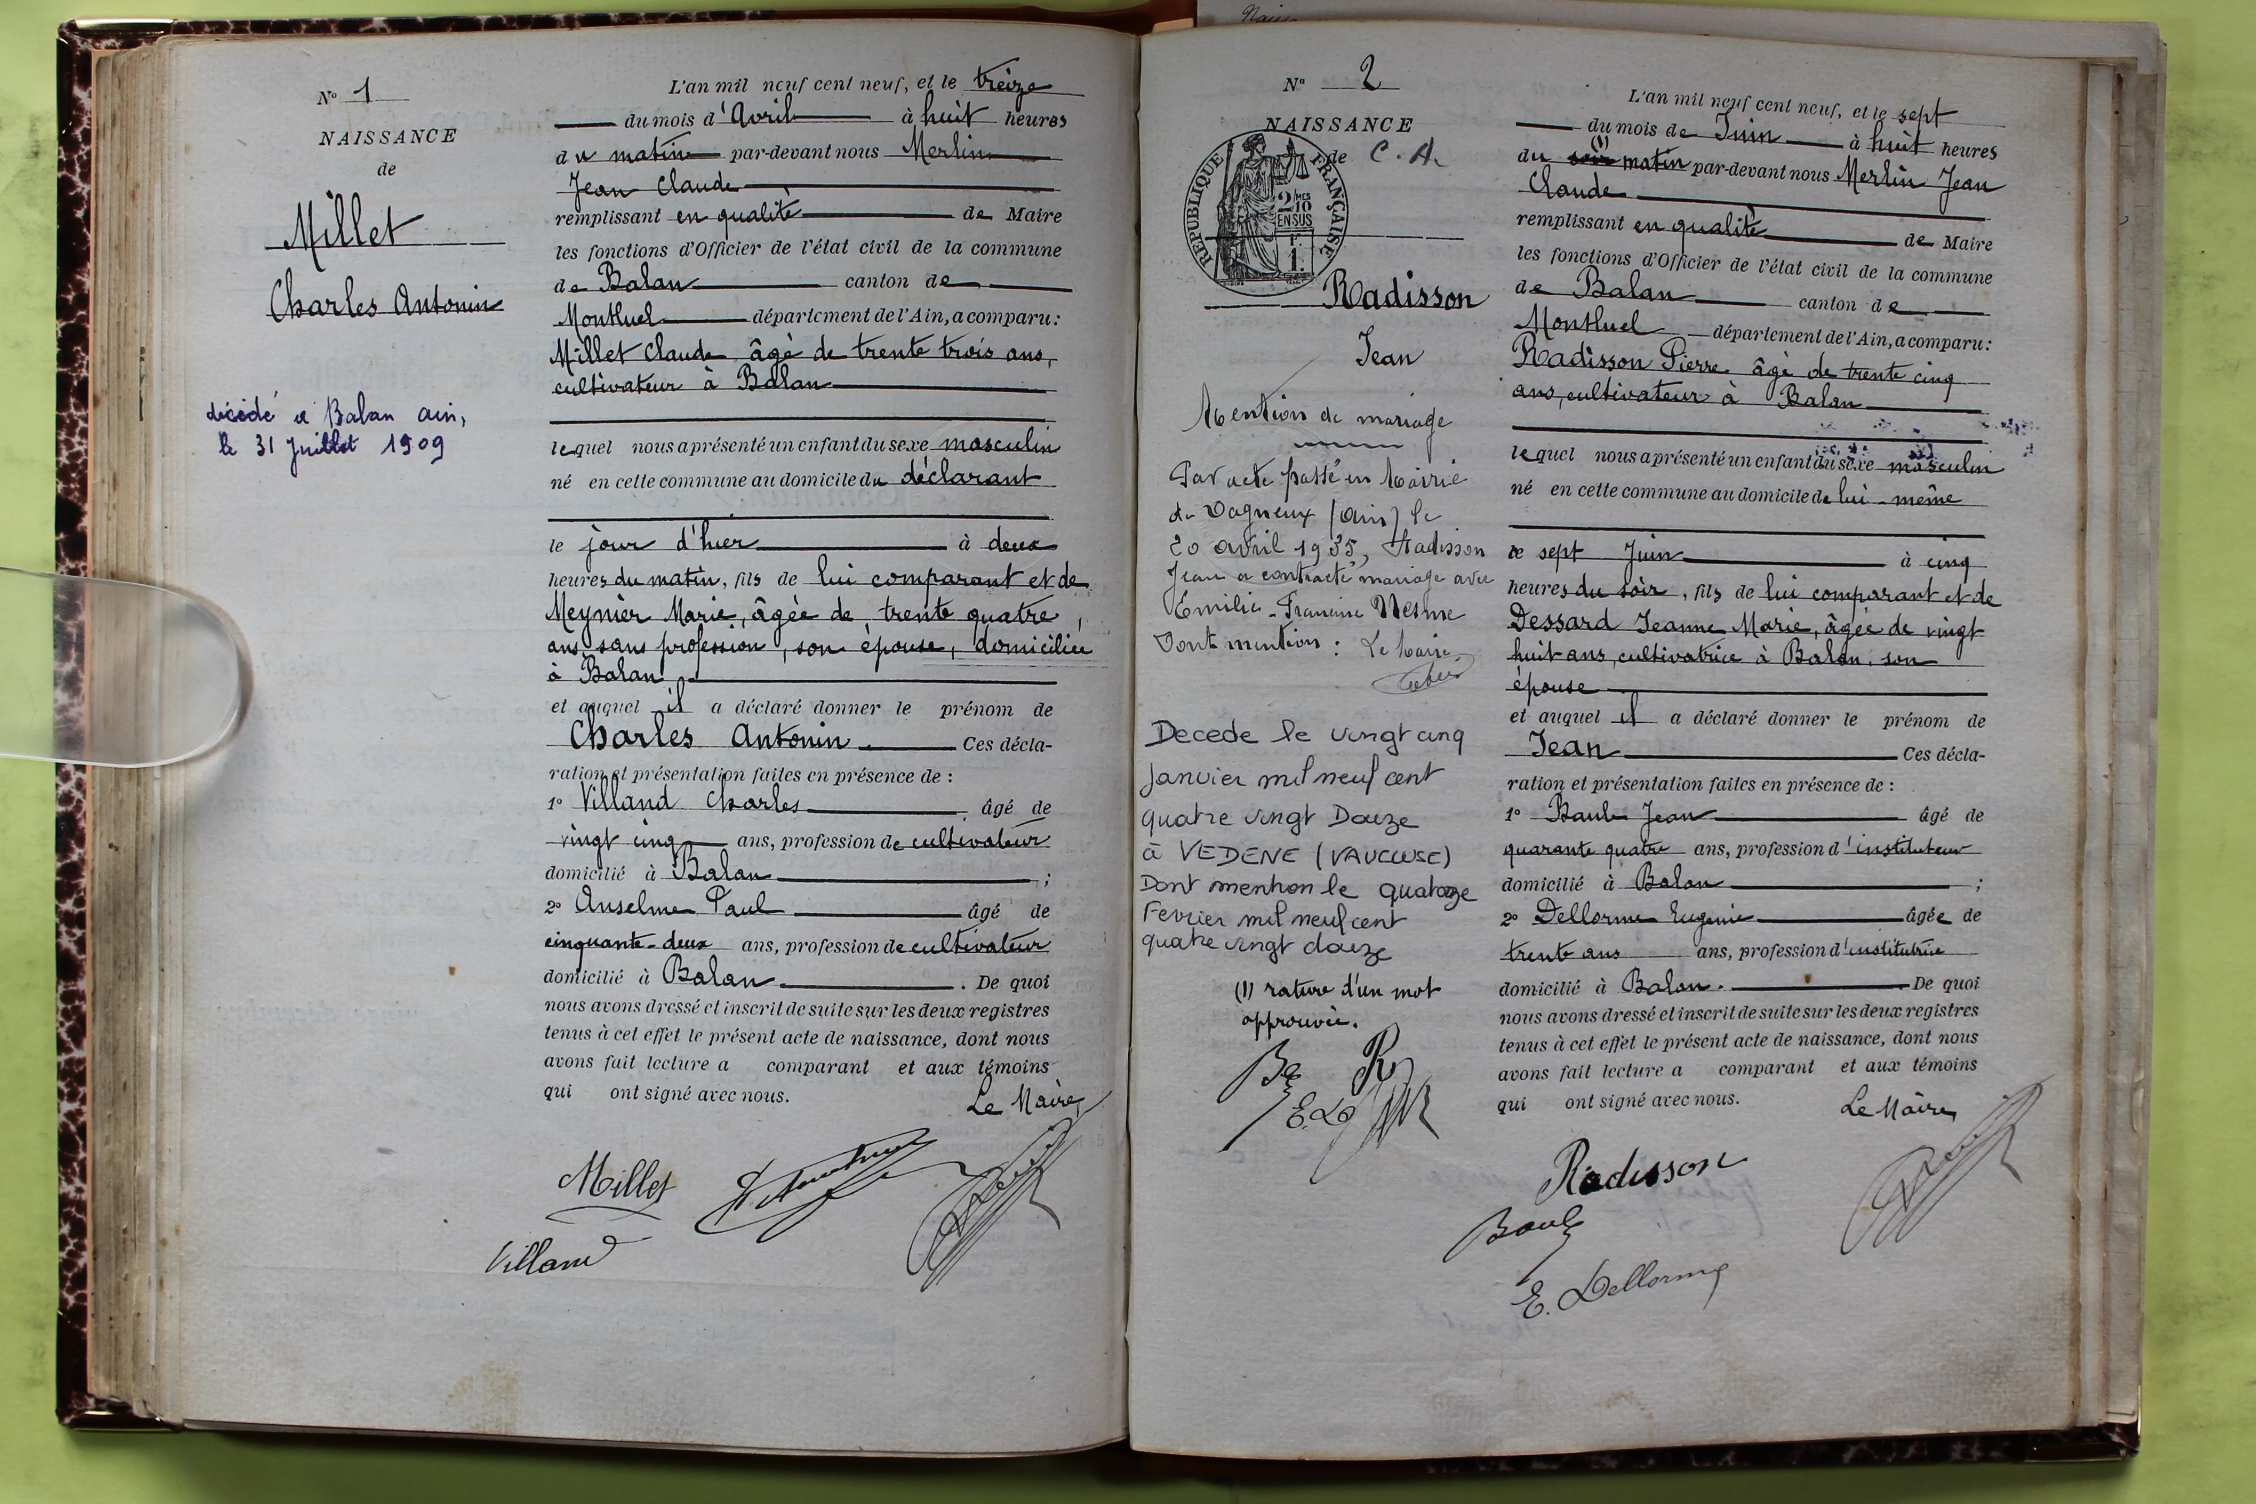 N° 1
NAISSANCE
de
Millet
Charles Antonin
décédé à Balan ain,
le 31 Juillet 1909
L'an mil neuf cent neuf, et le treize
du mois d'Avril à huit heures
du matin par-devant nous Merlin
Jean Claude
remplissant en qualité de Maire
les fonctions d'Officier de l'état civil de la commune
de Balan canton de
Montluel département de l'Ain, a comparu:
Millet Claude âgé de trente trois ans,
cultivateur à Balan
lequel nous a présenté un enfant du sexe masculin
né en cette commune au domicile du déclarant
le jour d'hier à deux
heures du matin, fils de lui comparant et de
Meynier Marie, âgée de trente quatre,
ans sans profession, son épouse, domiciliée
à Balan
et auquel il a déclaré donner le prénom de
Charles Antonin Ces décla-
ration et présentation faites en présence de :
1° Villand Charles âgé de
vingt cinq ans, profession de cultivateur
domicilié à Balan ;
2° Anselme Paul âgé de
cinquante-deux ans, profession de cultivateur
domicilié à Balan. De quoi
nous avons dressé et inscrit de suite sur les deux registres
tenus à cet effet le présent acte de naissance, dont nous
avons fait lecture a comparant et aux témoins
qui ont signé avec nous.
Le Maire,
Millet
Villand
N° 2
NAISSANCE
de C. A.
REPUBLIQUE FRANÇAISE
2/10 MES
EN SUS
1 F.
Radisson
Jean
Mention de mariage
Par acte passé en Mairie
de Dagneux (Ain) le
20 avril 1935, Radisson
Jean a contracté mariage avec
Emilie-Francine Nesme
Dont mention : Le Maire.
Decede le vingt cinq
Janvier mil neuf cent
quatre vingt Douze
à VEDENE (VAUCLUSE)
Dont mention le quatorze
Fevrier mil neuf cent
quatre vingt douze
(1) rature d'un mot
approuvée.
Ba R
E. De
L'an mil neuf cent neuf, et le sept
du mois de Juin à huit heures
(1)
du soir matin par-devant nous Merlin Jean
Claude
remplissant en qualité de Maire
les fonctions d'Officier de l'état civil de la commune
de Balan canton de
Montluel département de l'Ain, a comparu:
Radisson Pierre âgé de trente cinq
ans, cultivateur à Balan
lequel nous a présenté un enfant du sexe masculin
né en cette commune au domicile de lui-même
le sept Juin à cinq
heures du soir, fils de lui comparant et de
Dessard Jeanne Marie, âgée de vingt
huit ans, cultivatrice à Balan, son
épouse
et auquel il a déclaré donner le prénom de
Jean Ces décla-
ration et présentation faites en présence de :
1° Baule Jean âgé de
quarante quatre ans, profession d'instituteur
domicilié à Balan ;
2° Dellorme Eugenie âgée de
trente ans ans, profession d'institutrice
domicilié à Balan. De quoi
nous avons dressé et inscrit de suite sur les deux registres
tenus à cet effet le présent acte de naissance, dont nous
avons fait lecture a comparant et aux témoins
qui ont signé avec nous.
Le Maire,
Radisson
Baule
E. Dellorme